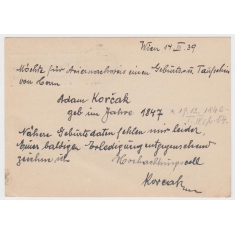 Wien 14 II 39
Möchte für Ariernachweis einen Geburts u. Taufschein
von Herrn
Adam Korčak
geb im Jahre 1847
Nähere Geburtsdaten fehlen mir leider.
Einer baldigen Erledigung entgegensehend
zeichne ich
Hochachtungsvoll
Korčak